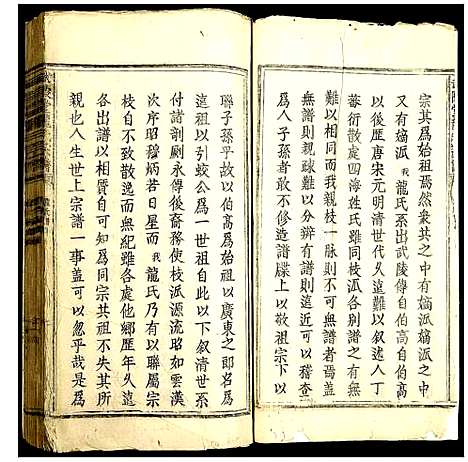 宗其爲始祖焉然衆其之中有嫡派嫡派之中
又有嫡派我龍氏系出武陵傳自伯高自伯高
以後歷唐宋元明清世代久遠難以叙述人丁
蕃衍散處四海姓氏雖同枝派不一使無譜者
難以相同而我親枝一脉則不可無譜者焉蓋
無譜則親疎難以分辨有譜則遠近可以稽查
爲人子孫者敢不修造譜牒上以敬祖宗下以
聯子孫乎故以伯高爲始祖以廣東之郎名爲
遠祖以引蛟公爲一世祖自此以下叙清世系
付諸剞劂永傳後裔務使枝派源流昭如雲漢
次序昭穆炳若日星而我龍氏乃有以聯屬宗
枝自不致散逸而無紀雖各處他鄉歷年久遠
各出譜以相質自可知爲同宗共祖不失其所
親也人生世上宗譜一事蓋可以忽乎哉是爲